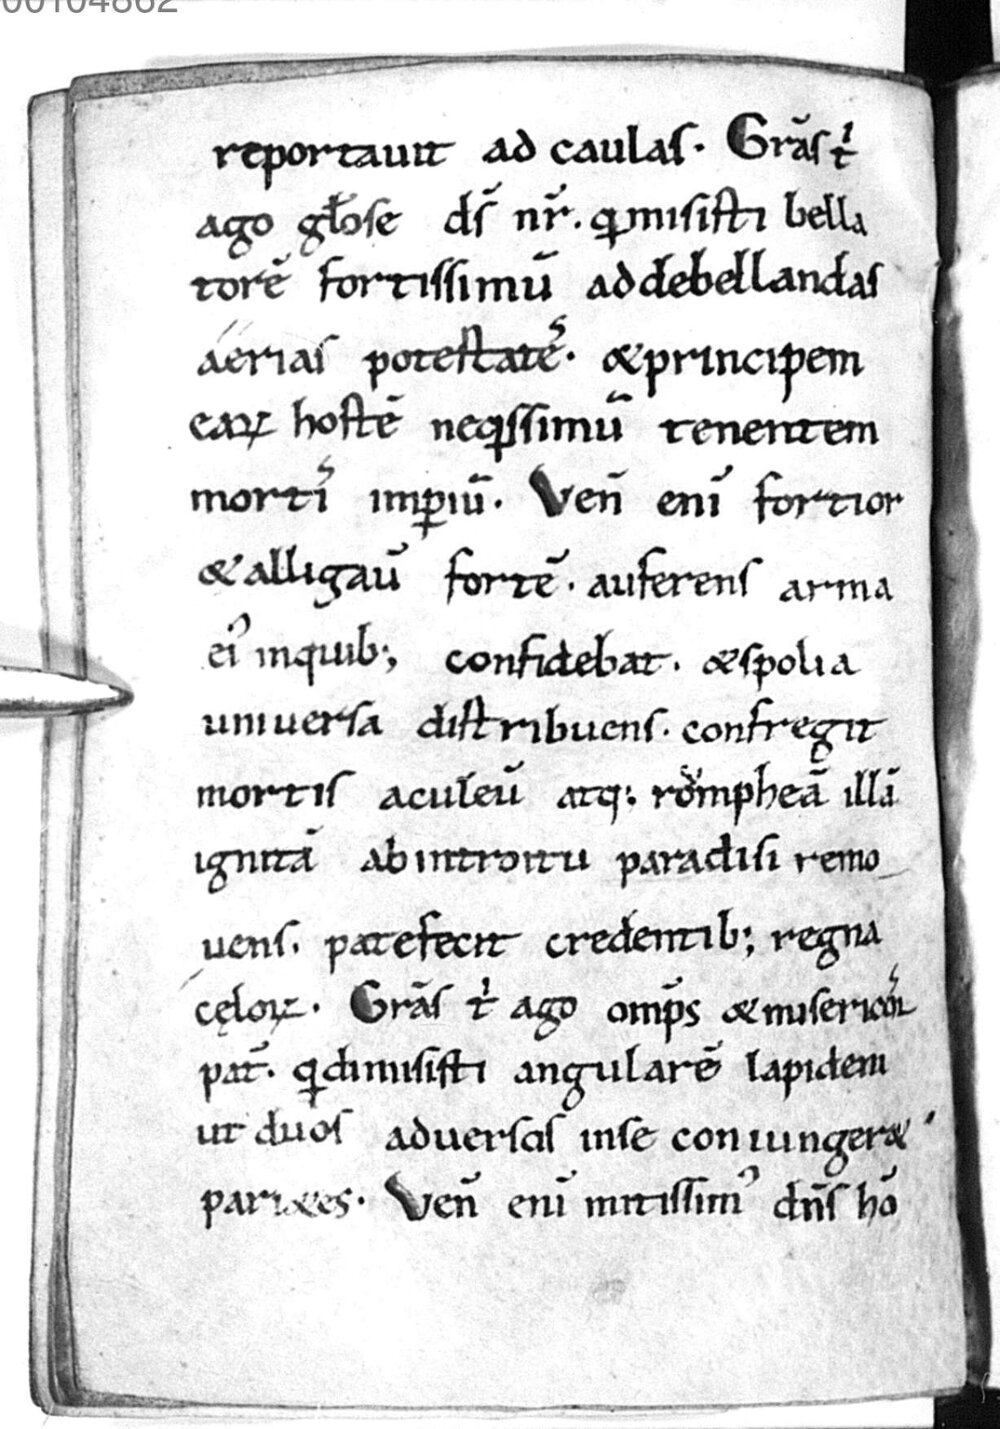 00104862
reportauit ad caulas. Grãs t̍
ago głose ds̄ nr̄. qͥ misisti bella
torē fortissimū ad debellandas
aerias potestatēˢ. & principem
eaꝝ hostē neqͥssimū tenentem
mortiˢ imꝑiū. Ven̄ enī fortior
& alligaū fortē. auferens arma
eiꝰ in quib; confidebat. & spolia
uniuersa distribuens. confregit
mortis aculeū atq: romphęā illā
ignitā ab introitu paradisi remo
uens. patefecit credentib; regna
cęloꝝ. Grãs t̍ ago omp̄s & misericōr
pat̄. qͥ dimisisti angularē lapidem
ut duos aduersas in se coniunger&
pari&es. Ven̄ enī mitissimꝰ dn̄s hō